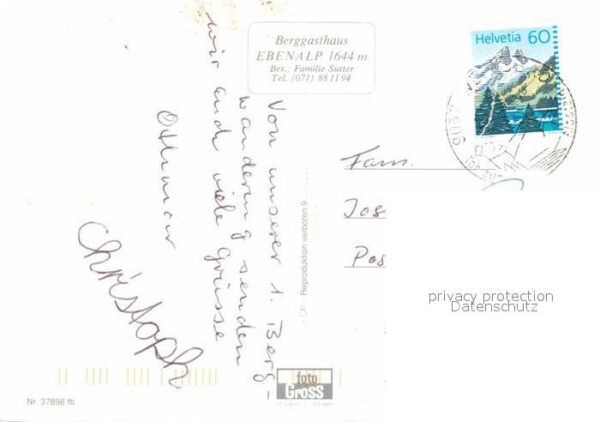 Berggasthaus
EBENALP 1644 m
Bes.: Familie Sutter
Tel. (071) 88 11 94
Helvetia 60
Von unserer 1. Berg-
wanderung senden
wir euch viele Grüsse
Othmar
Christoph
Fam.
Jos
Pos
Reproduktion verboten 9
privacy protection
Datenschutz
foto
Gross
Nr. 37898 fb